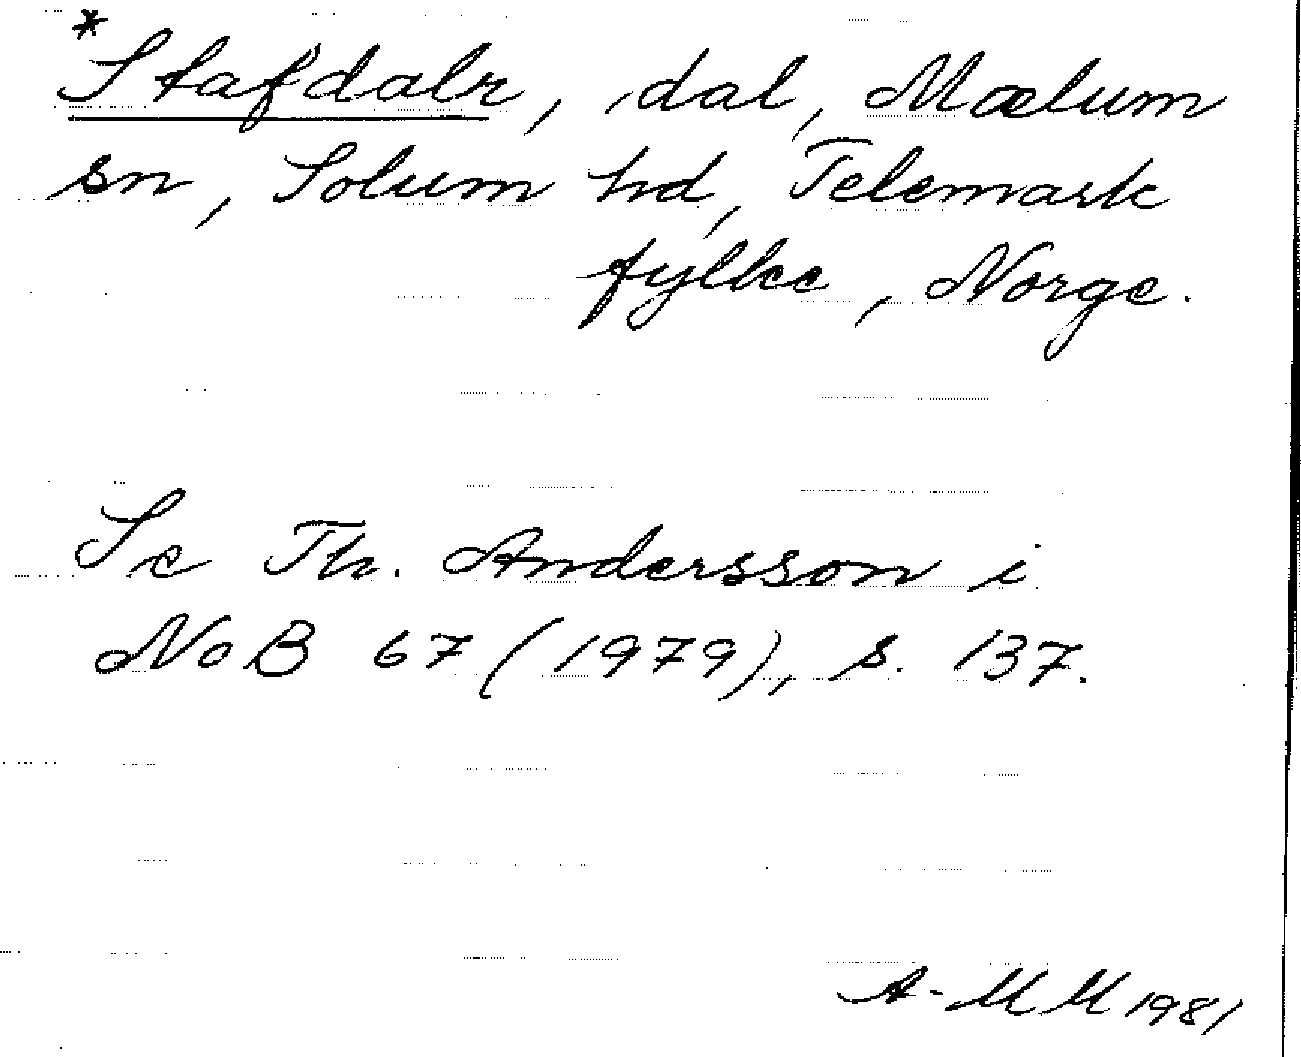 *Stafdalr, dal, Mælum
sn, Solum hd, Telemark
fylke, Norge.
Se Th. Andersson i
NoB 67 (1979), s. 137.
A-MM 1981